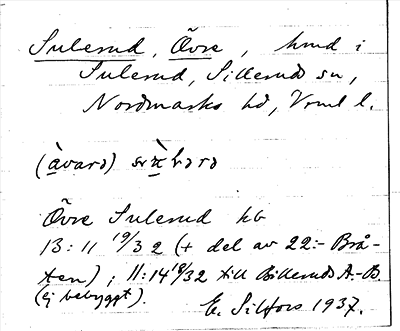 Sulerud, Övre, hmd i
Sulerud, Sillerud sn,
Nordmarks hd, Vrml l.
(àvarə)
Övre Sulerud hb
13:11 19/32 (+ del av 22:- Brå-
ten); 11:14 18/32 till Billeruds A.-B.
(ej bebyggt).
E. Silfors 1937.